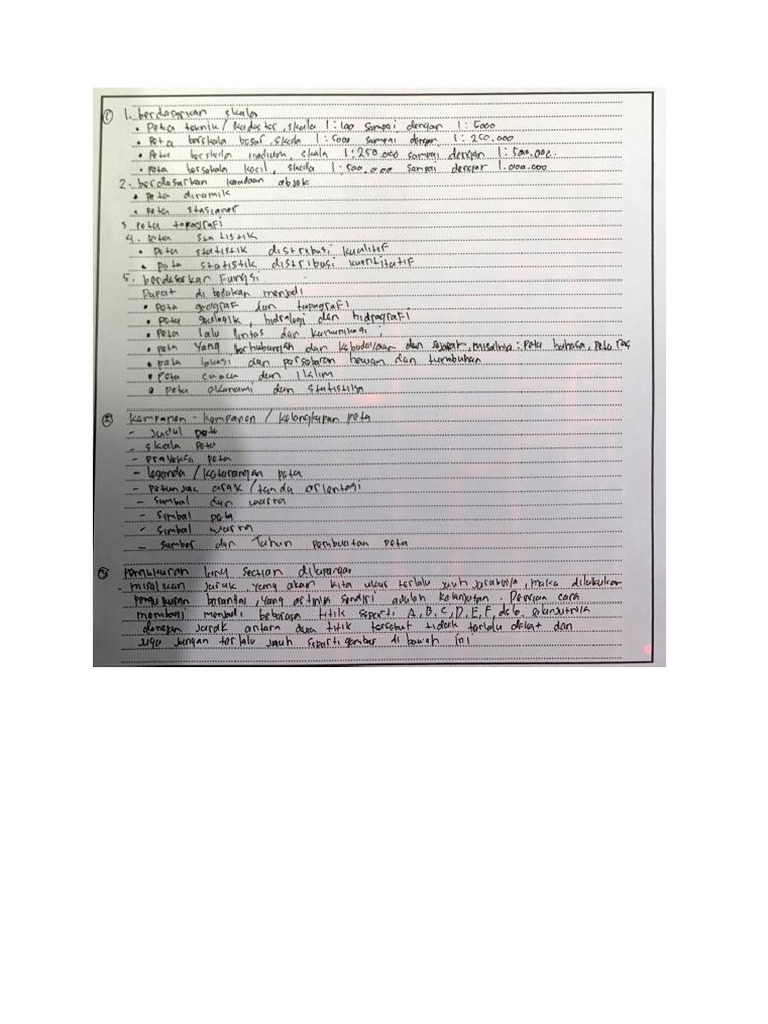 ① 1. berdasarkan skala
• Peta teknik / kadaster, skala 1:100 sampai dengan 1:5000
• Peta berskala besar, skala 1:5000 sampai dengan 1:250.000
• Peta berskala medium, skala 1:250.000 sampai dengan 1:500.000.
• peta berskala kecil, skala 1:500.000 sampai dengan 1.000.000
2. berdasarkan keadaan objek
• Peta dinamik
• Peta stasioner
3 Peta topografi
4. Peta statistik
• Peta statistik distribusi kualitif
• Peta statistik distribusi kuantitatif
5. berdasarkan Fungsi
Dapat di bedakan menjadi
• Peta geograf dan topografi
• Peta geologik, hidrologi dan hidrografi
• Peta lalu lintas dan komunikasi,
• peta yang berhubungan dan kebudayaan dan sejarah, misalnya: Peta bahasa, peta ras
• peta lokasi dan persebaran hewan dan tumbuhan
• Peta cuaca dan iklim
• peta ekonomi dan statistik
② Komponen - komponen / kelengkapan peta
- Judul peta
- skala peta
- proyeksi peta
- legenda / keterangan peta
- petunjuk arah / tanda orientasi
- Simbol dan warna
- Simbol peta
- Simbol warna
- Sumber dan Tahun pembuatan peta
③ Pengukuran long section dilapangan
. misalkan jarak yang akan kita ukur terlalu jauh jaraknya, maka dilakukan
pengukuran berantai, yang artinya sendiri adalah kelanjutan. Dengan cara
membagi menjadi beberapa titik seperti A, B, C, D, E, F, dlb. Selanjutnya
dengan jarak antara dua titik tersebut tidak terlalu dekat dan
juga jangan terlalu jauh seperti gambar di bawah ini